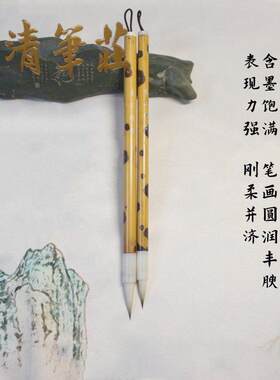 清笔莊
含墨饱满 笔画圆润丰腴
表现力强 刚柔并济